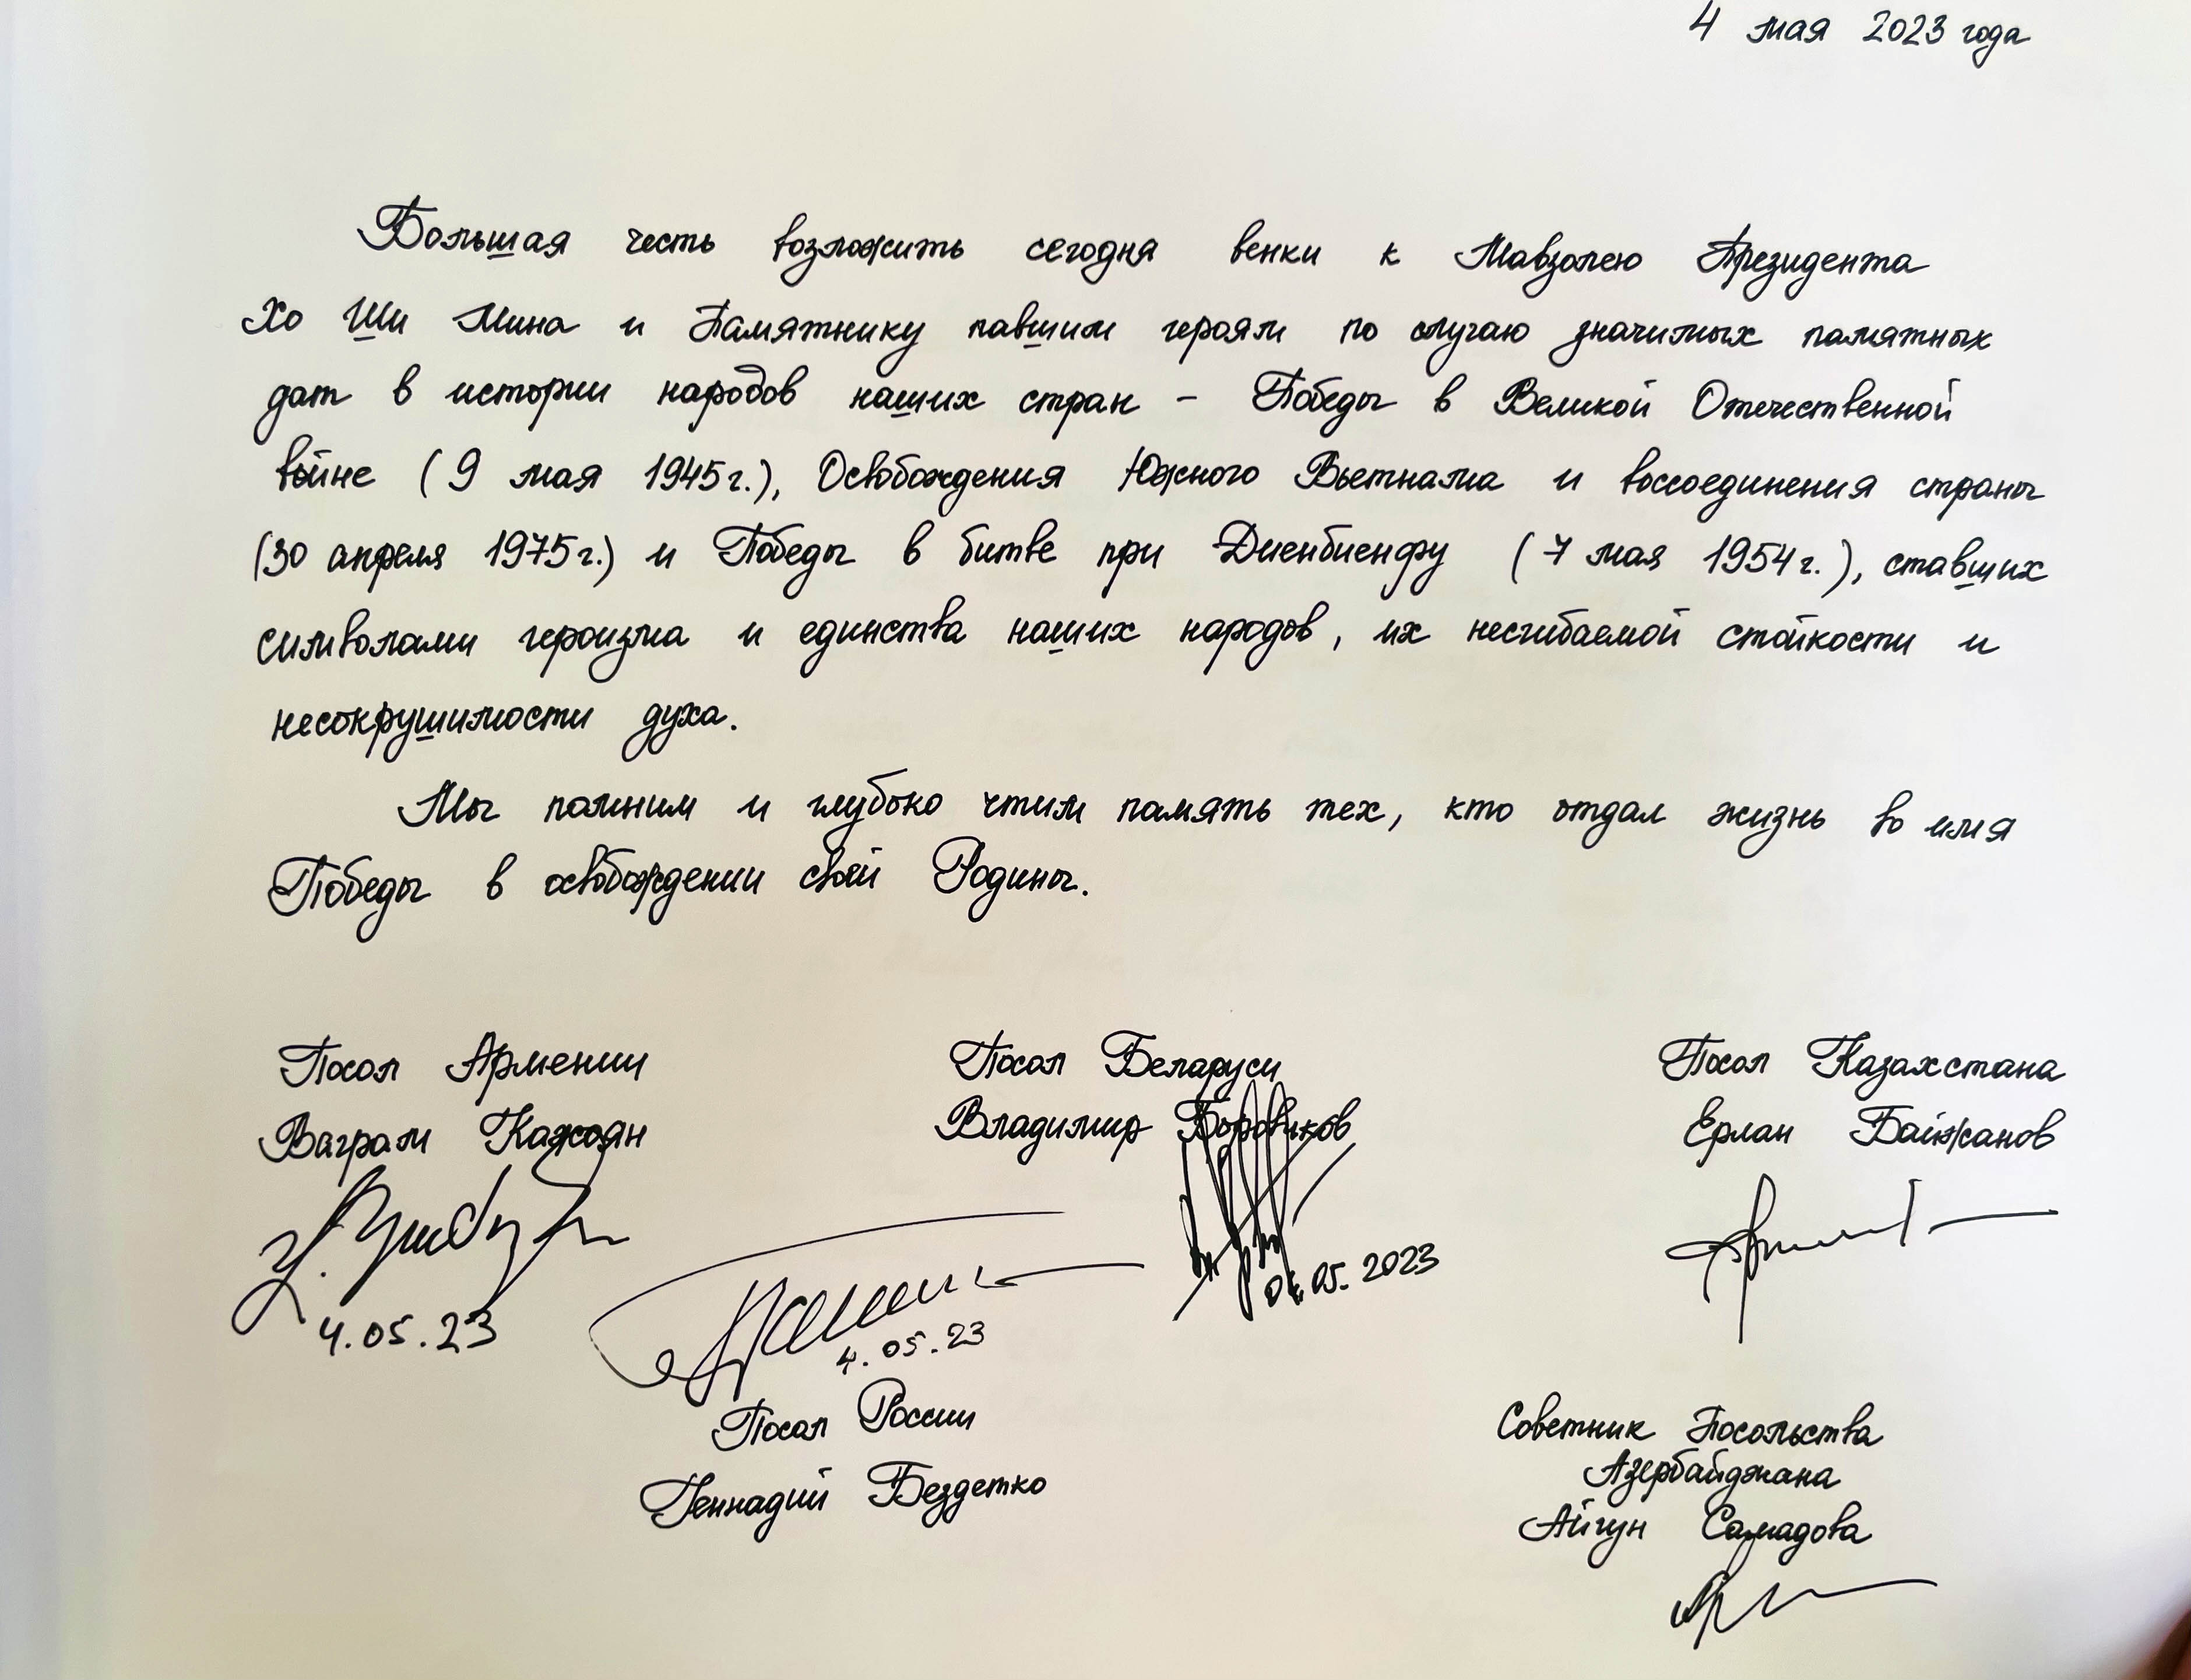 4 мая 2023 года
Большая честь возложить сегодня венки к Мавзолею Президента
Хо Ши Мина и Памятнику павшим героям по случаю значимых памятных
дат в истории народов наших стран – Победы в Великой Отечественной
войне (9 мая 1945 г.), Освобождения Южного Вьетнама и воссоединения страны
(30 апреля 1975 г.) и Победы в битве при Диенбиенфу (7 мая 1954 г.), ставших
символами героизма и единства наших народов, их несгибаемой стойкости и
несокрушимости духа.
Мы помним и глубоко чтим память тех, кто отдал жизнь во имя
Победы в освобождении своей Родины.
Посол Армении
Ваграм Кажоян
4.05.23
Посол Беларуси
Владимир Боровиков
04.05.2023
Посол Казахстана
Ерлан Байжанов
4.05.23
Посол России
Геннадий Бездетко
Советник Посольства
Азербайджана
Айгун Самадова